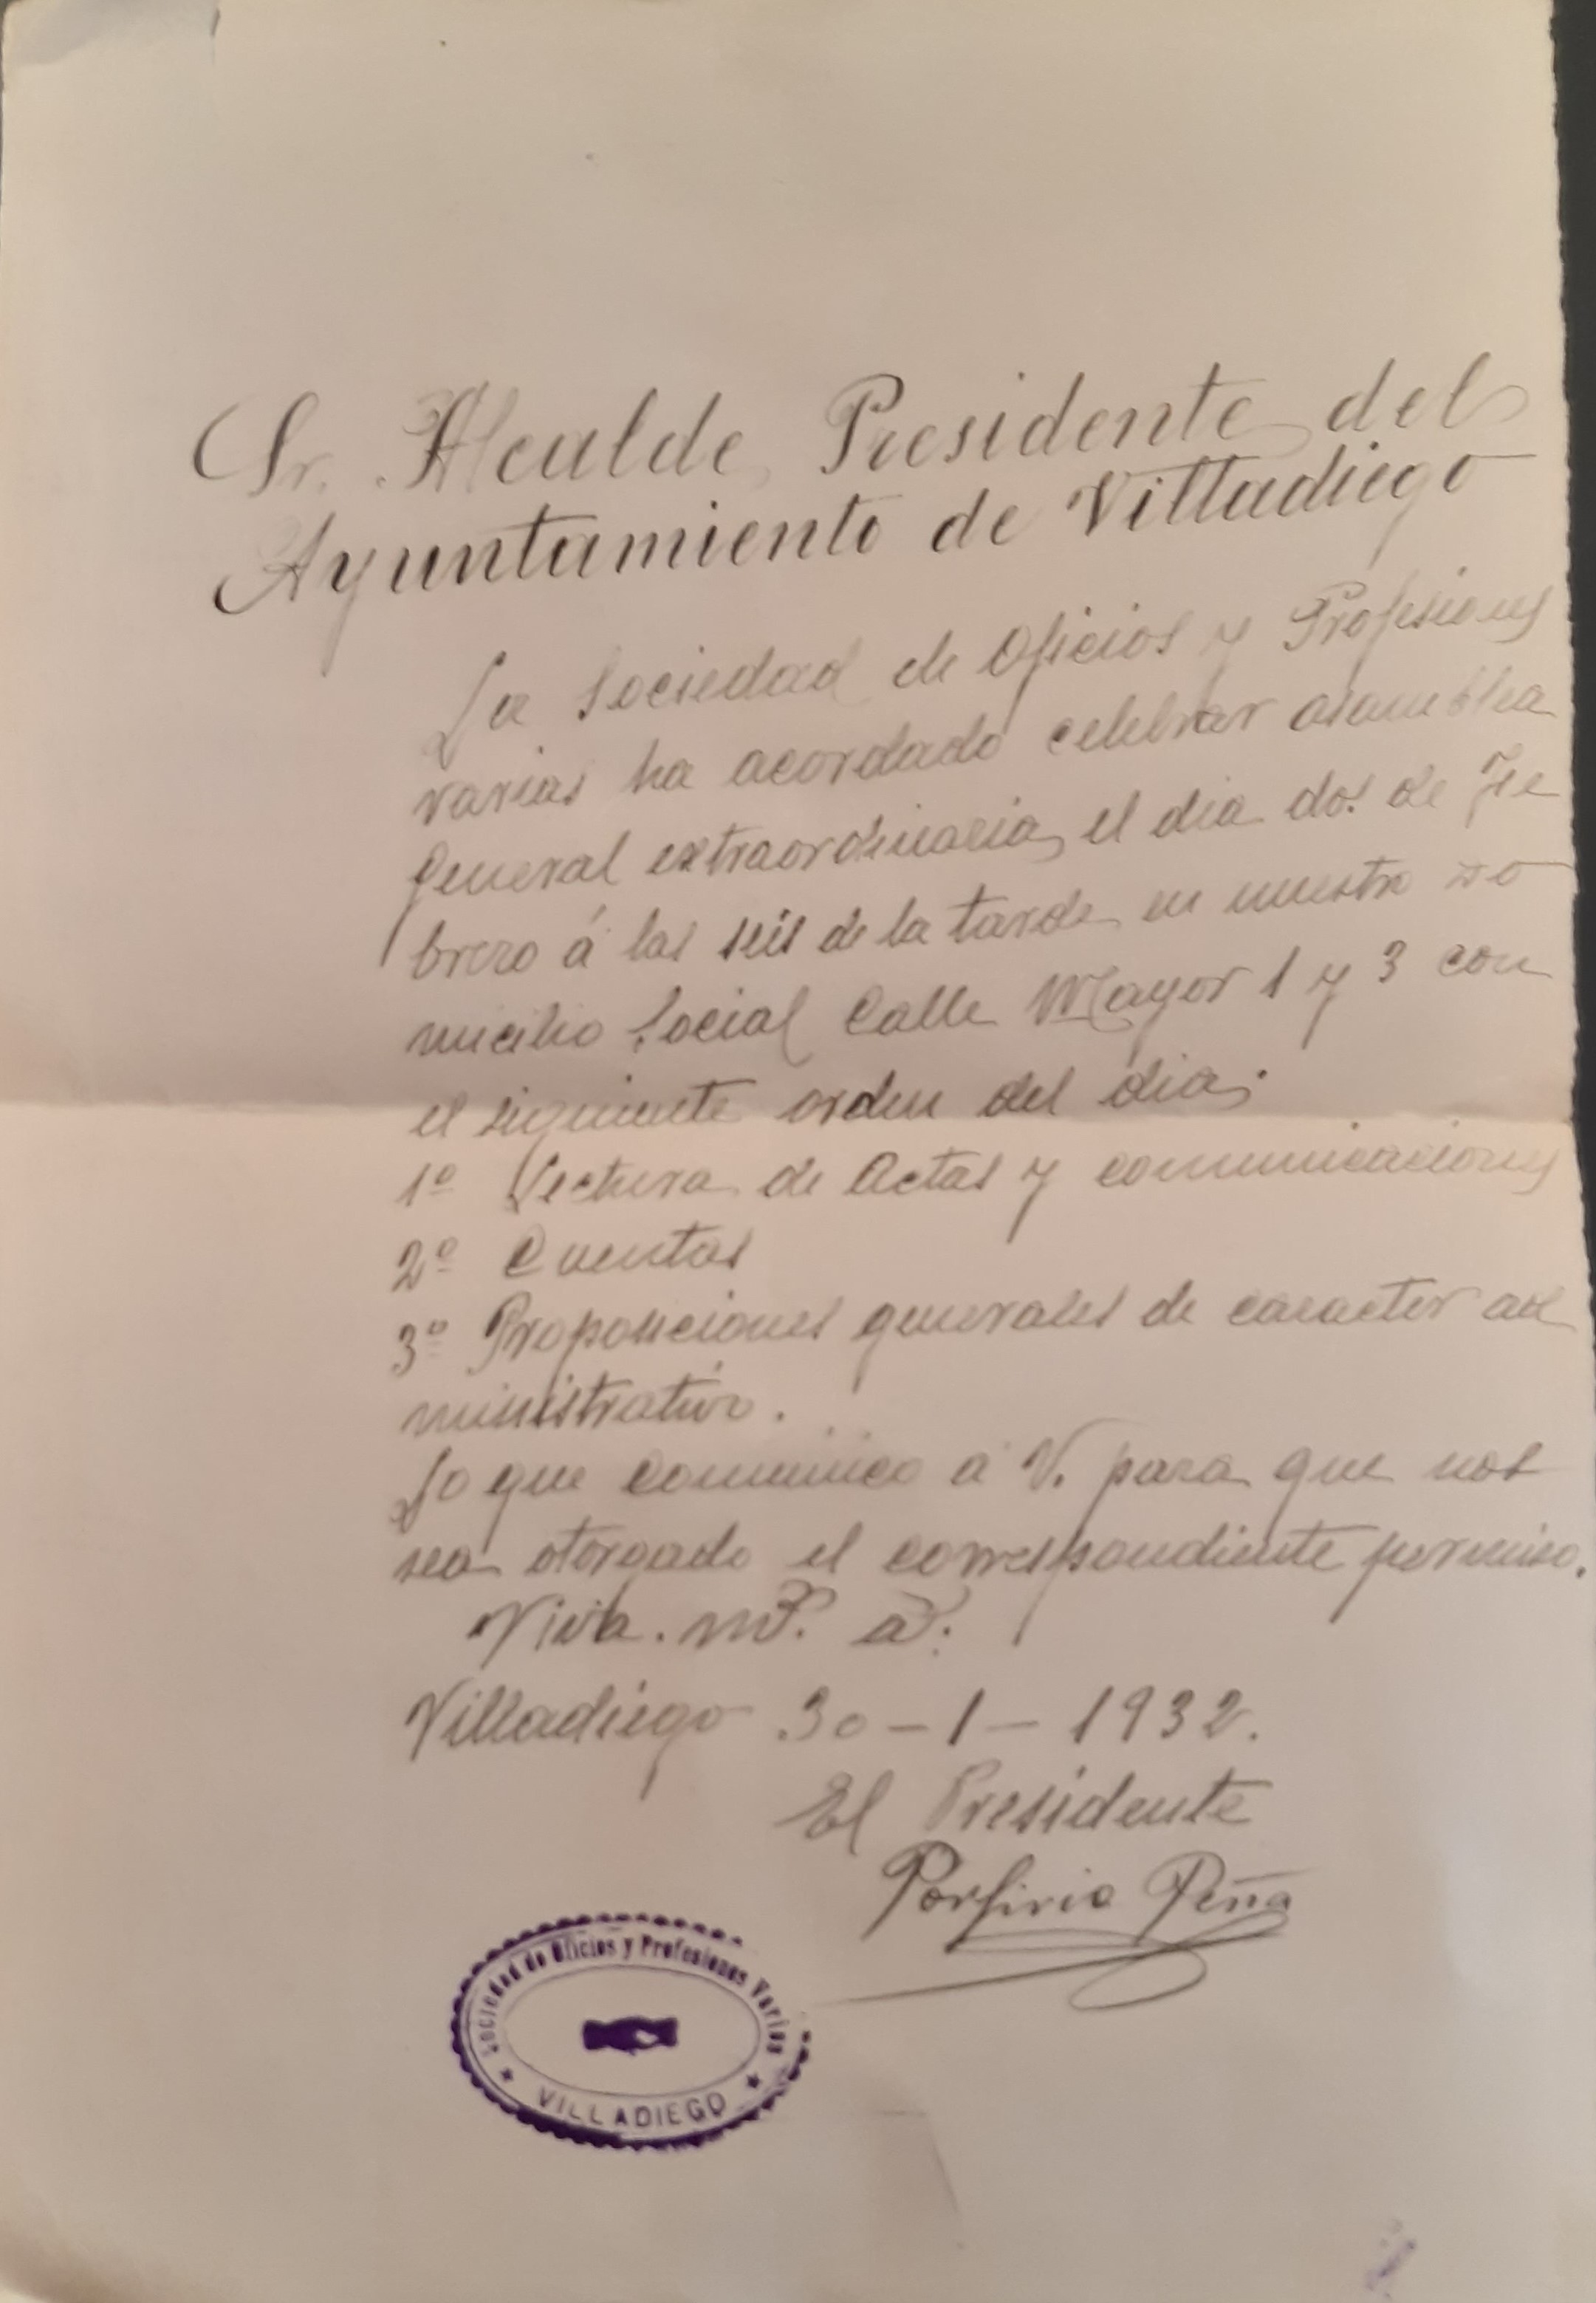 Sr. Alcalde Presidente del
Ayuntamiento de Villadiego
La Sociedad de Oficios y Profesiones
varias ha acordado celebrar asamblea
general extraordinaria, el dia dos de Fe
brero á las seis de la tarde en nuestro do
micilio Social Calle Mayor 1 y 3 con
el siguiente orden del dia:
1º Lectura de Actas y comunicaciones
2º Cuentas
3º Proposiciones generales de caracter ad
ministrativo.
Lo que comunico a V. para que nos
sea otorgado el correspondiente permiso.
Viva. mº. aº.
Villadiego 30-1-1932.
El Presidente
Porfirio Peña
Sociedad de Oficios y Profesiones Varias
VILLADIEGO